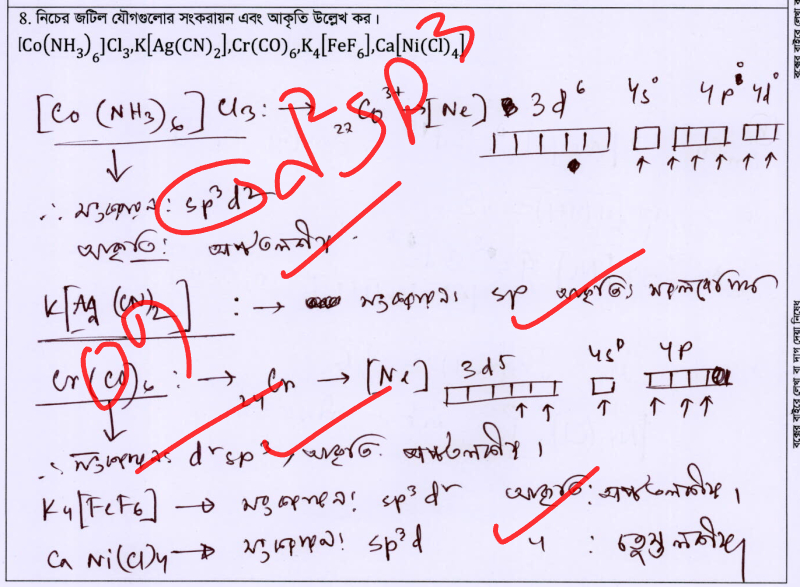 8. নিচের জটিল যৌগগুলোর সংকরায়ন এবং আকৃতি উল্লেখ কর।
[Co(NH₃)₆]Cl₃,K[Ag(CN)₂],Cr(CO)₆,K₄[FeF₆],Ca[Ni(Cl)₄]
[Co (NH₃)₆] Cl₃: → ₂₇Co³⁺ → [Ne] 3d⁶ 4s⁰ 4p⁰ 4d⁰
d²sp³
∴ সংকরায়ন: sp³d²
আকৃতি: অষ্টতলকীয়
K[Ag (CN)₂] : → সংকরায়ন: sp আকৃতি: সরলরৈখিক
Cr(CO)₆ : → ₂₄Cr → [Ne] 3d⁵ 4s⁰ 4p
∴ সংকরায়ন: d²sp³, আকৃতি: অষ্টতলকীয়।
K₄[FeF₆] → সংকরায়ন: sp³d² আকৃতি: অষ্টতলকীয়।
Ca Ni(Cl)₄ → সংকরায়ন: sp³d " : চতুস্তলকীয়